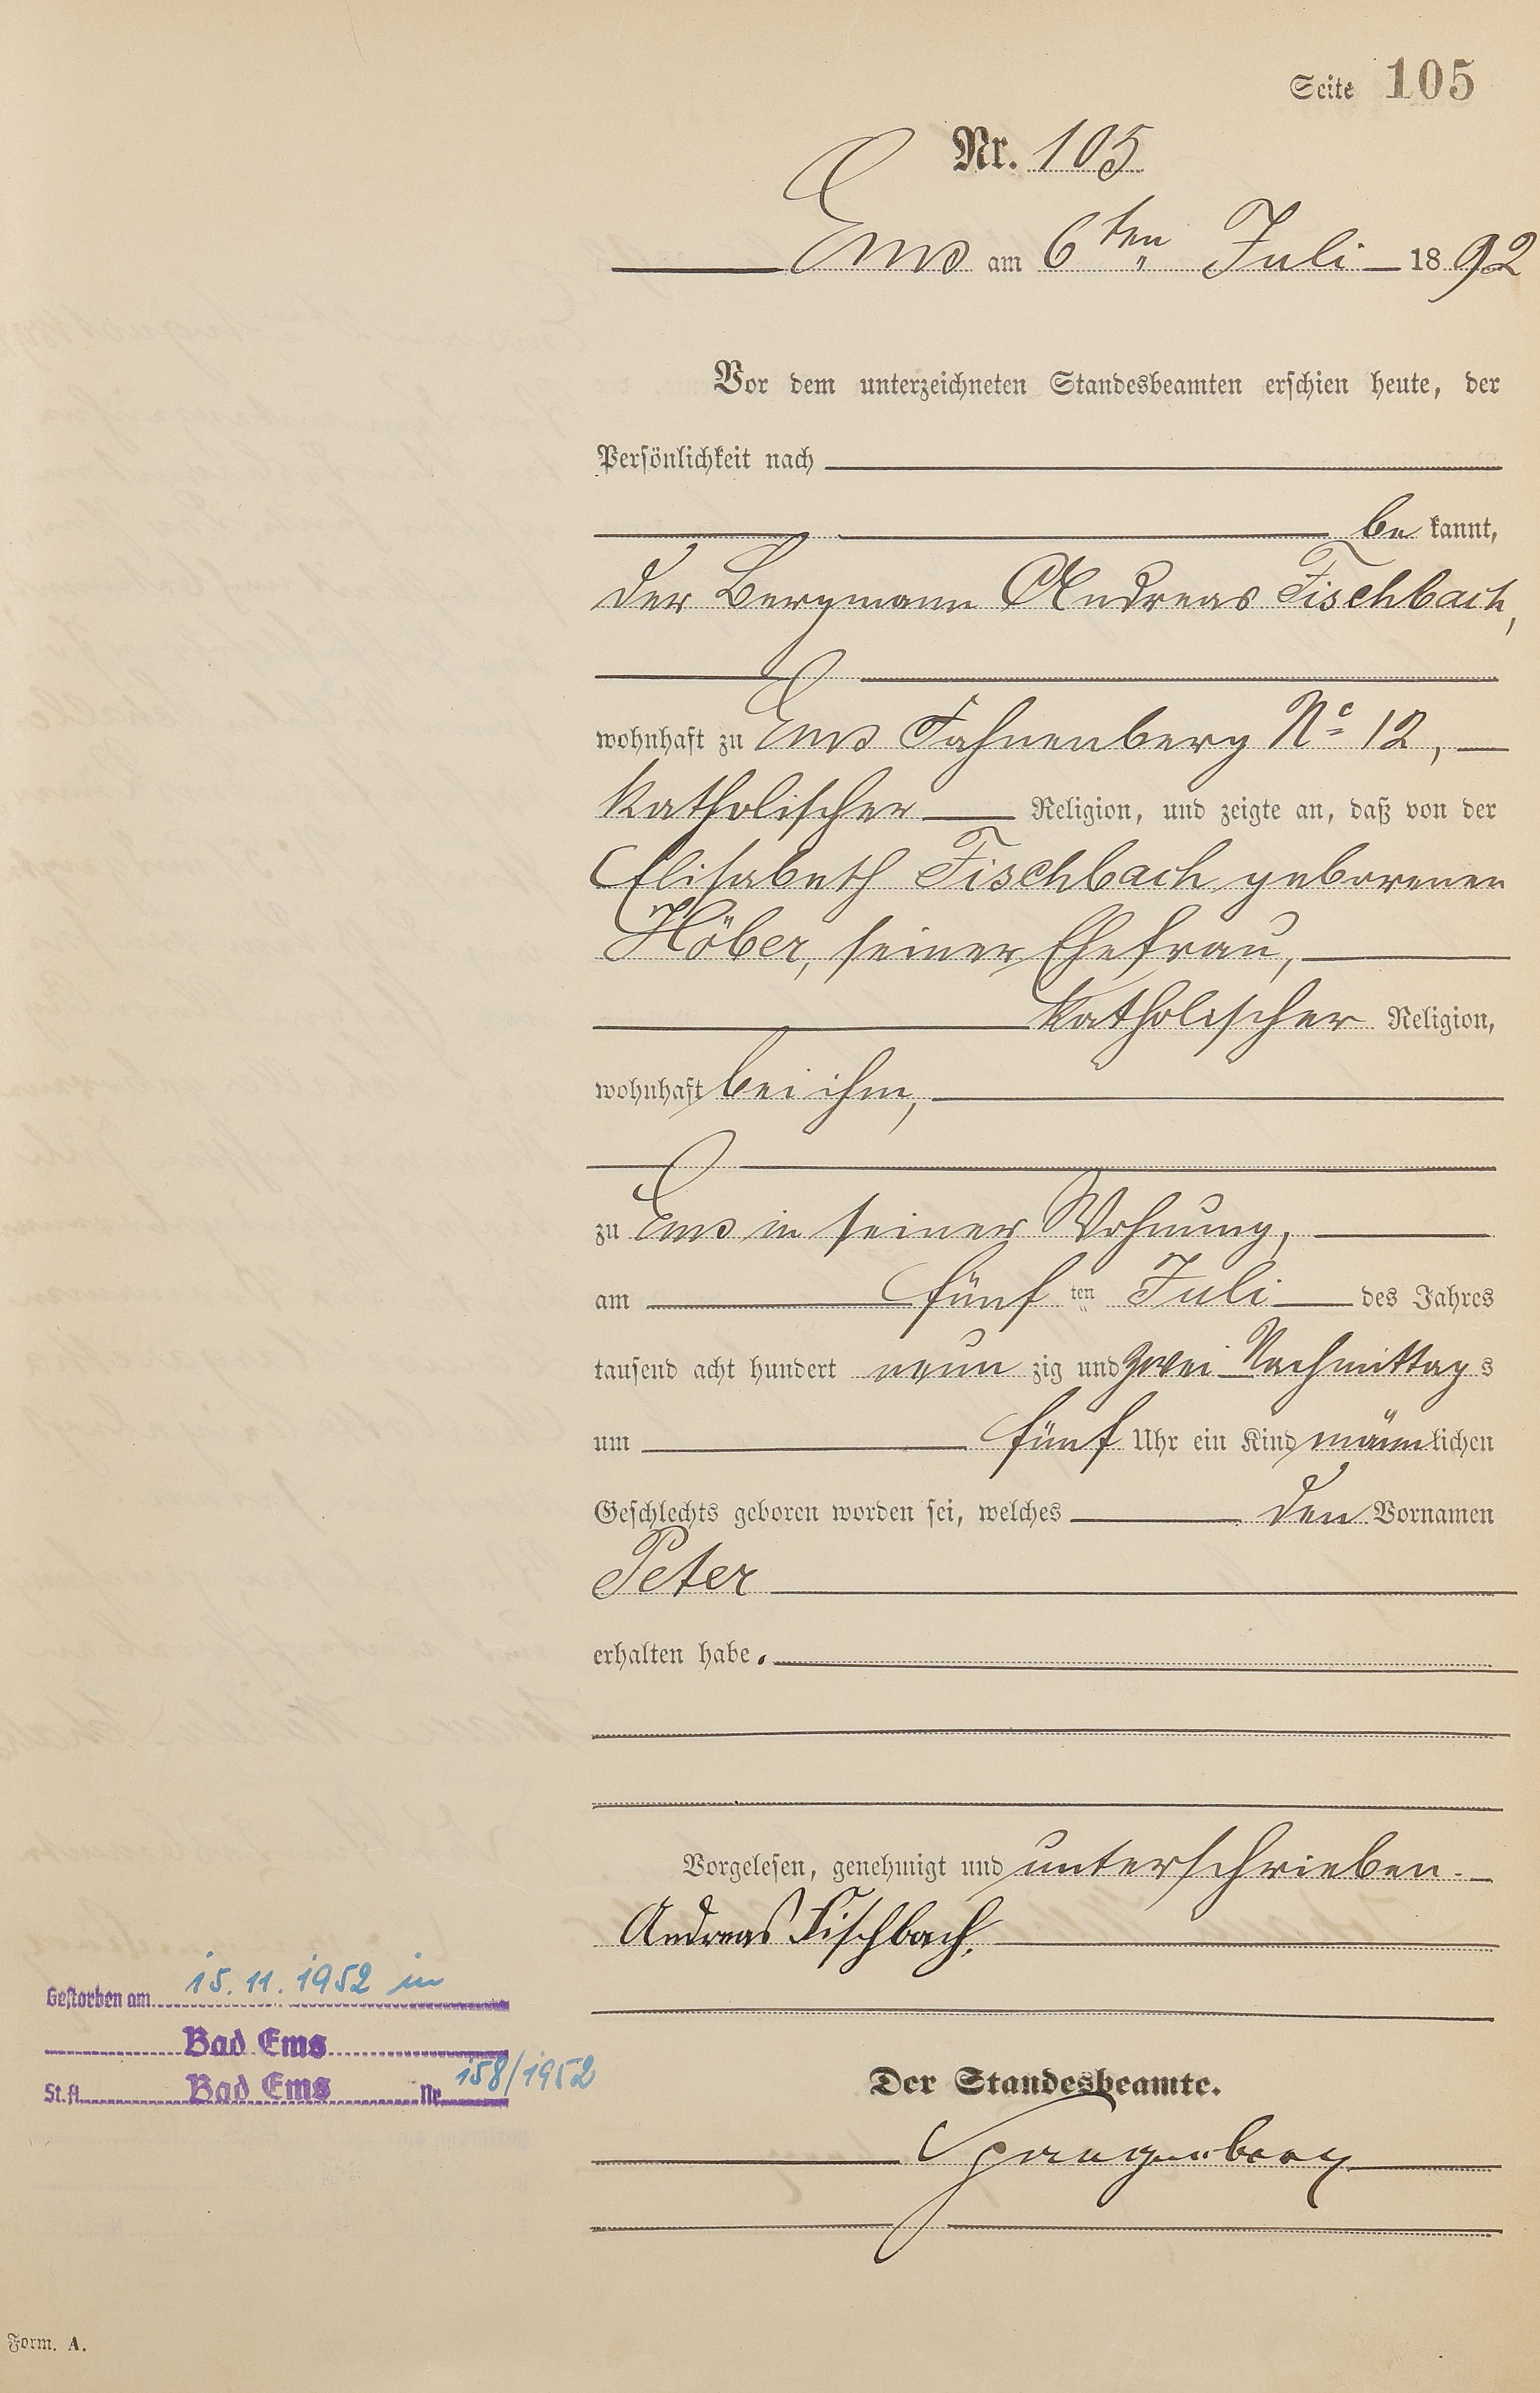 Seite 105
Nr. 105
Ems am 6ten Juli 1892
Vor dem unterzeichneten Standesbeamten erschien heute, der
Persönlichkeit nach
be kannt,
der Bergmann Andreas Fischbach,
wohnhaft zu Ems Fahnenberg No 12,
katholischer Religion, und zeigte an, daß von der
Elisabeth Fischbach geborenen
Höber, seiner Ehefrau,
katholischer Religion,
wohnhaft bei ihm,
zu Ems in seiner Wohnung,
am fünf ten Juli des Jahres
tausend acht hundert neun zig und zwei Nachmittag s
um fünf Uhr ein Kind männlichen
Geschlechts geboren worden sei, welches den Vornamen
Peter
erhalten habe.
Vorgelesen, genehmigt und unterschrieben.
Andreas Fischbach.
Gestorben am 15.11.1952 in
Bad Ems
St.A. Bad Ems Nr. 158/1952
Der Standesbeamte.
Spangenberg
Form. A.